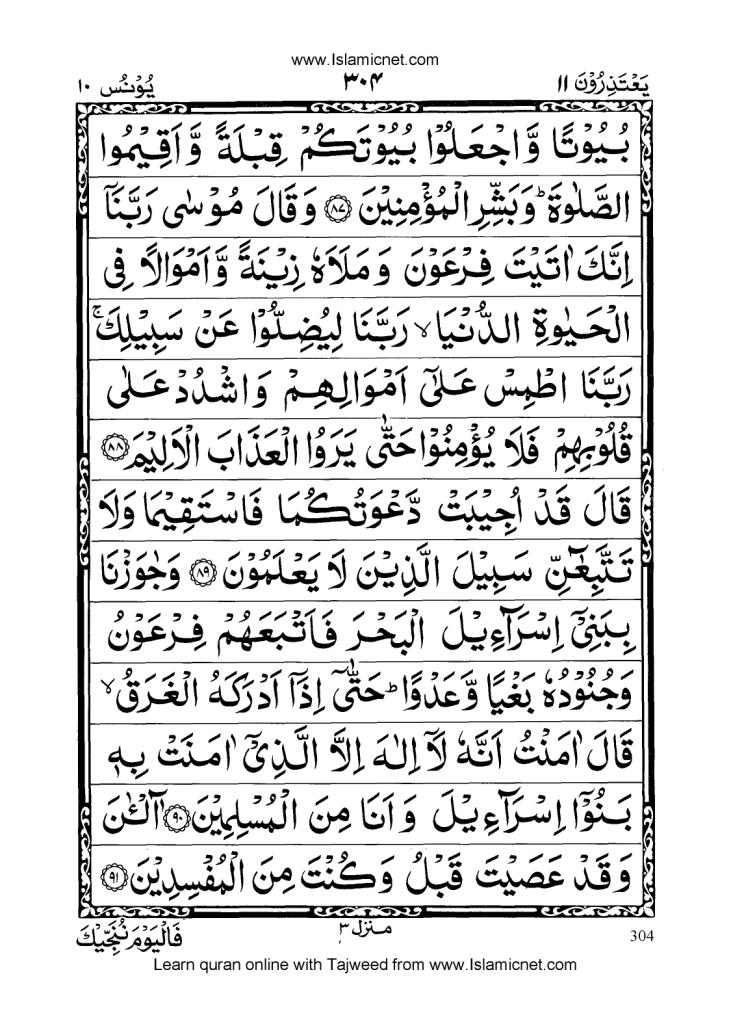 www.Islamicnet.com
يَعْتَذِرُوْنَ ١١ ٣٠٤ يُوْنُس ١٠
بُيُوْتًا وَّ اجْعَلُوْا بُيُوْتَكُمْ قِبْلَةً وَّ اَقِيْمُوا
الصَّلٰوةَ ؕ وَبَشِّرِ الْمُؤْمِنِيْنَ ﴿٨٧﴾ وَ قَالَ مُوْسٰى رَبَّنَاۤ
اِنَّكَ اٰتَيْتَ فِرْعَوْنَ وَ مَلَاَهٗ زِيْنَةً وَّ اَمْوَالًا فِى
الْحَيٰوةِ الدُّنْيَا ۙ رَبَّنَا لِيُضِلُّوْا عَنْ سَبِيْلِكَ ۚ
رَبَّنَا اطْمِسْ عَلٰٓى اَمْوَالِهِمْ وَ اشْدُدْ عَلٰى
قُلُوْبِهِمْ فَلَا يُؤْمِنُوْا حَتّٰى يَرَوُا الْعَذَابَ الْاَلِيْمَ ﴿٨٨﴾
قَالَ قَدْ اُجِيْبَتْ دَّعْوَتُكُمَا فَاسْتَقِيْمَا وَلَا
تَتَّبِعٰٓنِّ سَبِيْلَ الَّذِيْنَ لَا يَعْلَمُوْنَ ﴿٨٩﴾ وَجٰوَزْنَا
بِبَنِىْۤ اِسْرَآءِيْلَ الْبَحْرَ فَاَتْبَعَهُمْ فِرْعَوْنُ
وَجُنُوْدُهٗ بَغْيًا وَّعَدْوًا ؕ حَتّٰۤى اِذَاۤ اَدْرَكَهُ الْغَرَقُ ۙ
قَالَ اٰمَنْتُ اَنَّهٗ لَاۤ اِلٰهَ اِلَّا الَّذِىْۤ اٰمَنَتْ بِهٖ
بَنُوْۤا اِسْرَآءِيْلَ وَ اَنَا مِنَ الْمُسْلِمِيْنَ ﴿٩٠﴾ آٰلْـٰٔنَ
وَ قَدْ عَصَيْتَ قَبْلُ وَ كُنْتَ مِنَ الْمُفْسِدِيْنَ ﴿٩١﴾
304 منزل ٣ فَالْيَوْمَ نُنَجِّيْكَ
Learn quran online with Tajweed from www.Islamicnet.com